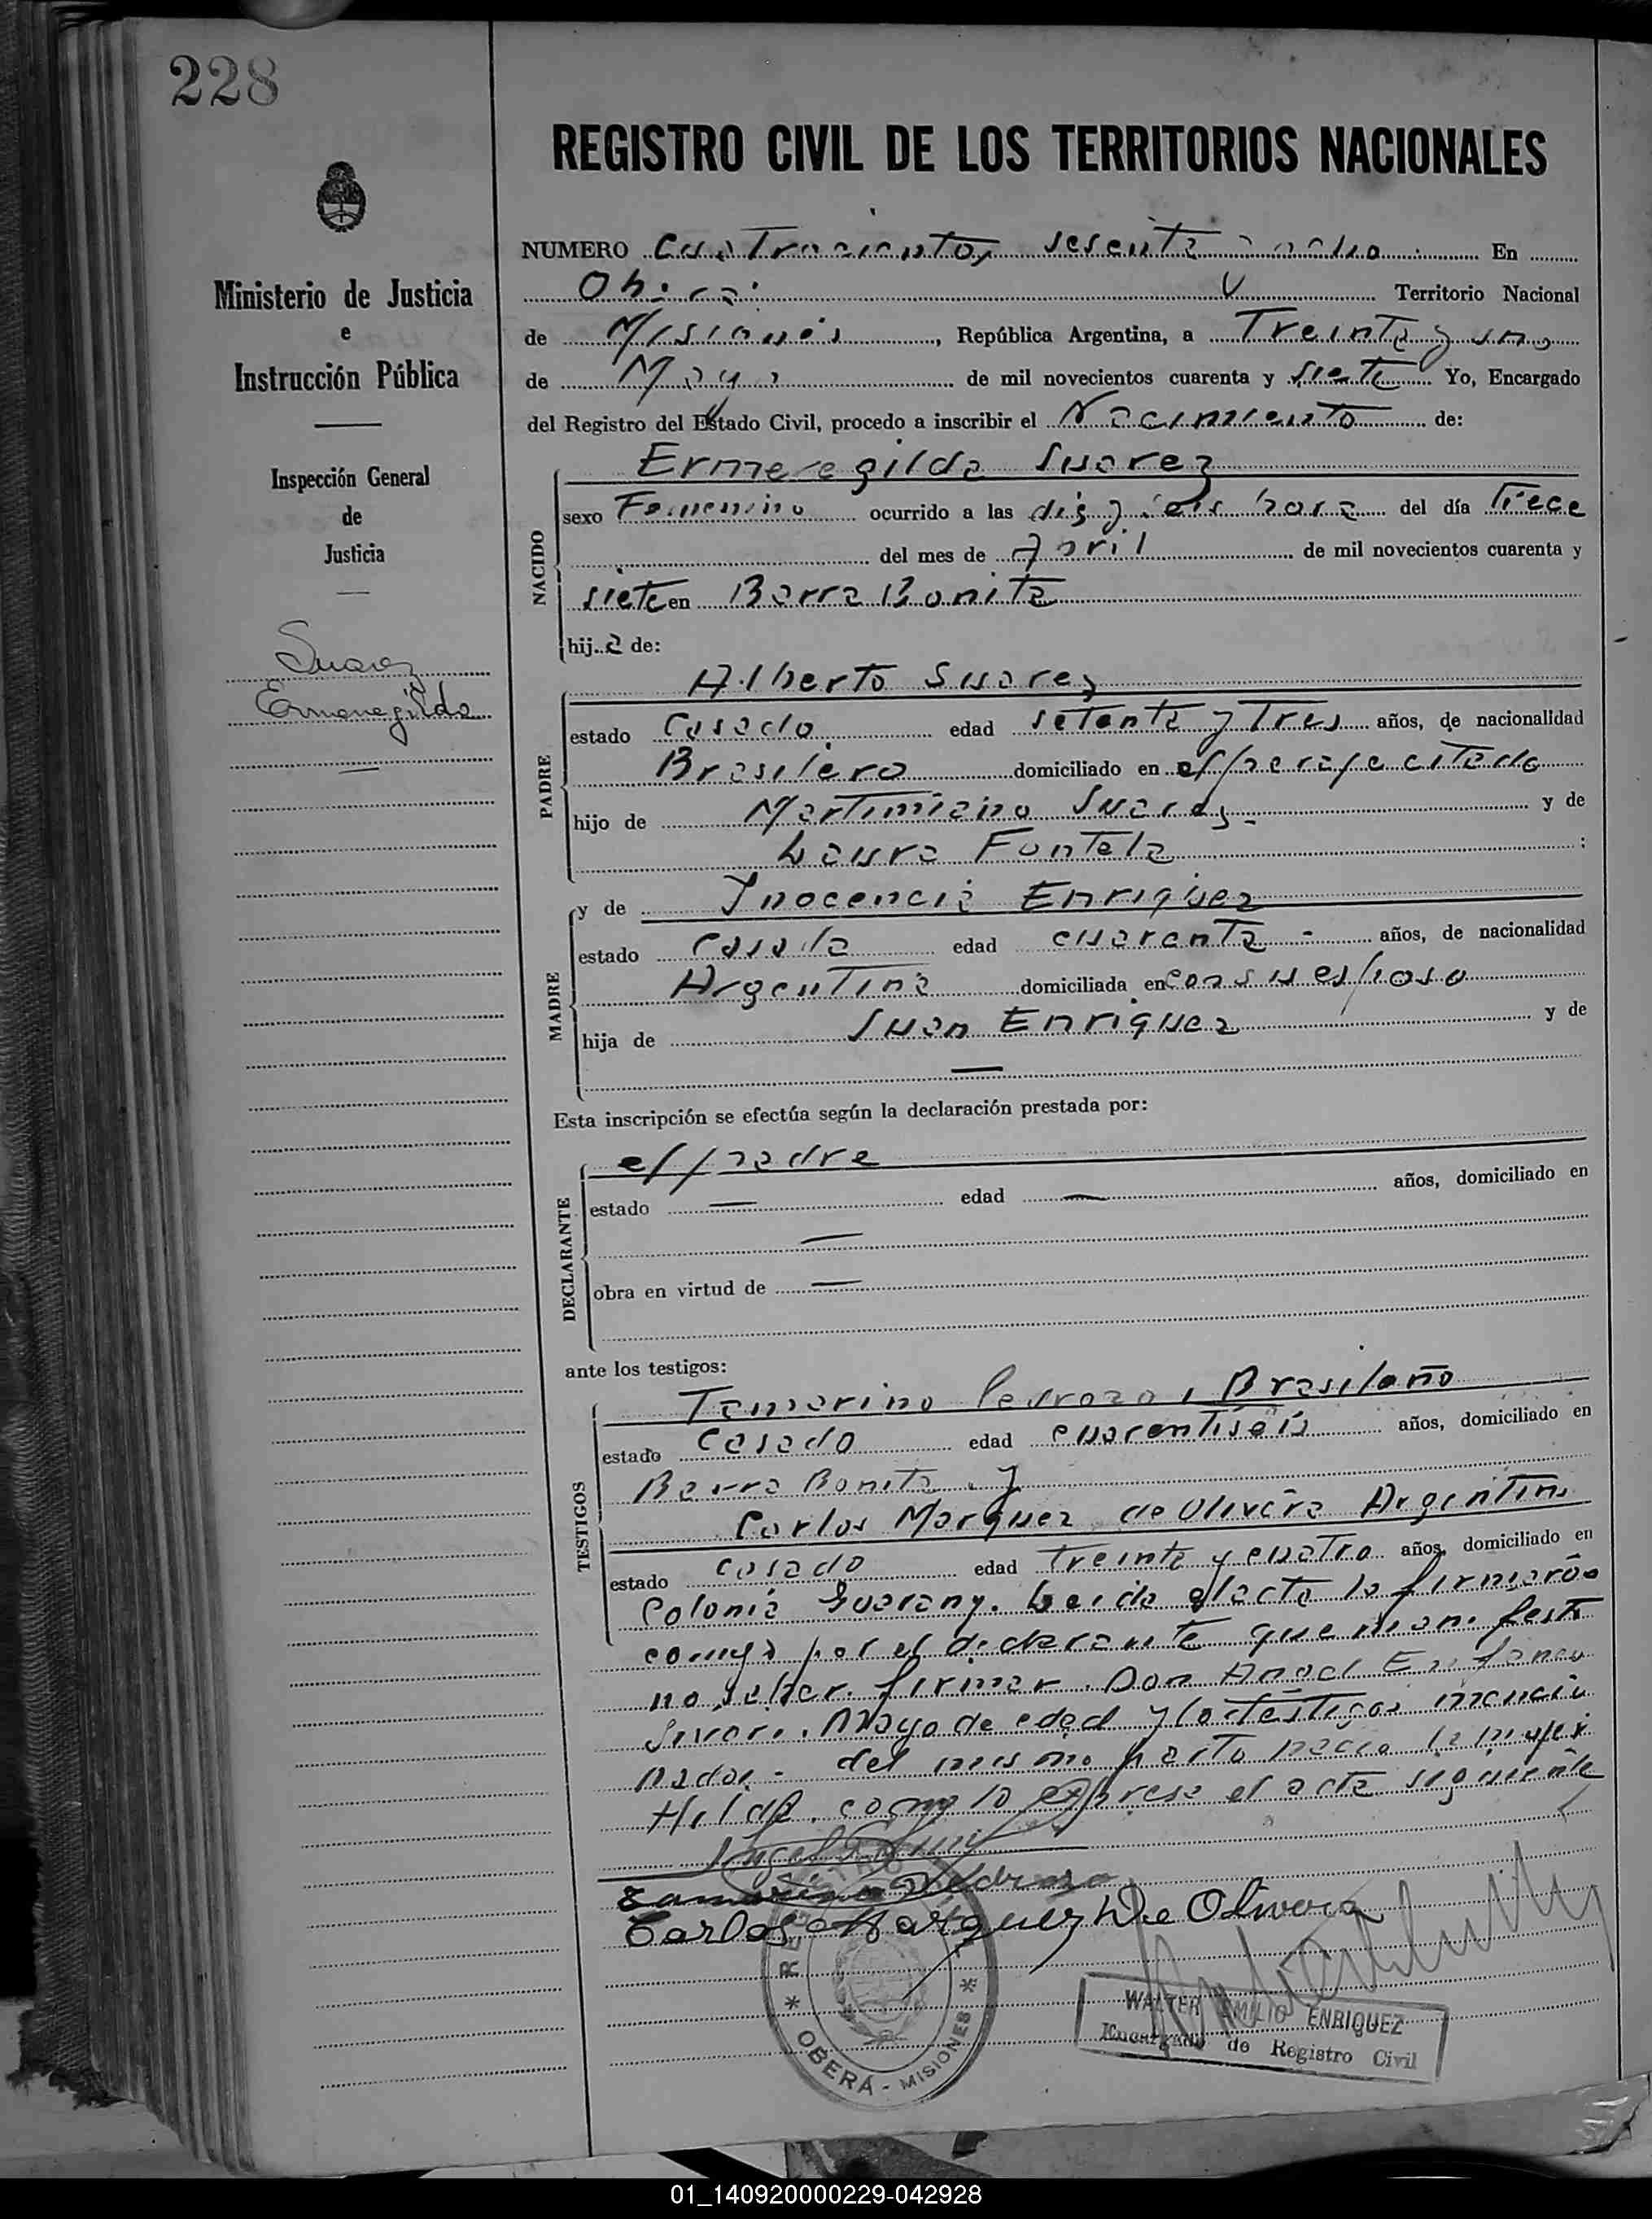 228
REGISTRO CIVIL DE LOS TERRITORIOS NACIONALES
Ministerio de Justicia
e
Instrucción Pública
Inspección General
de
Justicia
Suarez
Ermenegilda
NUMERO Cuatrocientos sesenta y ocho En
Oberá Territorio Nacional
de Misiones, República Argentina, a Treinta y uno
de Mayo de mil novecientos cuarenta y siete Yo, Encargado
del Registro del Estado Civil, procedo a inscribir el Nacimiento de:
Ermenegilda Suarez
NACIDO
sexo Femenino ocurrido a las diez y seis hora del día Trece
del mes de Abril de mil novecientos cuarenta y
siete en Barra Bonita
hija de:
Alberto Suarez
PADRE
estado Casado edad setenta y Tres años, de nacionalidad
Brasilero domiciliado en el paraje citado
hijo de Martimiano Suarez - y de
Laura Fontela :
y de Inocencia Enriquez
MADRE
estado Casada edad cuarenta - años, de nacionalidad
Argentina domiciliada en con su esposo
hija de Juan Enriquez y de
—
Esta inscripción se efectúa según la declaración prestada por:
el padre
DECLARANTE
estado — edad — años, domiciliado en
—
obra en virtud de —
ante los testigos:
Tamarino Pedrozo, Brasileño
TESTIGOS
estado casado edad cuarentiseis años, domiciliado en
Barra Bonita y
Carlos Marquez de Olivera Argentino
estado casado edad treinta y cuatro años, domiciliado en
Colonia Guarany. Leida el acta la firmaron
conmigo por el declarante que manifestó
no saber firmar Don Angel
Mayo de edad y los testigos mencio
nados - del mismo parto nacio la mujer
Hilda, como lo expresa el acta siguiente
Tamarino Pedrozo
Carlos Marquez De Olivera
REGISTRO
* OBERÁ - MISIONES *
WALTER EMILIO ENRIQUEZ
Encargado de Registro Civil
01_140920000229-042928